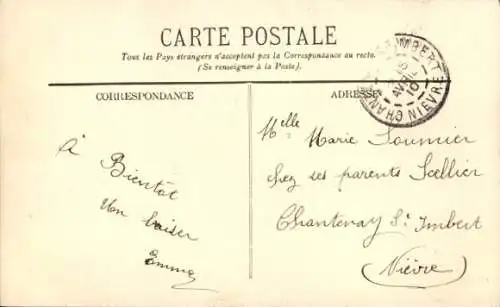 CARTE POSTALE
Tous les Pays étrangers n'acceptent pas la Correspondance au recto.
(Se renseigner à la Poste).
CORRESPONDANCE
ADRESSE
CHANTENAY ST IMBERT
AVRIL
10
NIÈVRE
à
Bientôt
Un baiser
Emma
Melle Marie Soumier
chez ses parents Scellier
Chantenay St Imbert
(Nièvre)